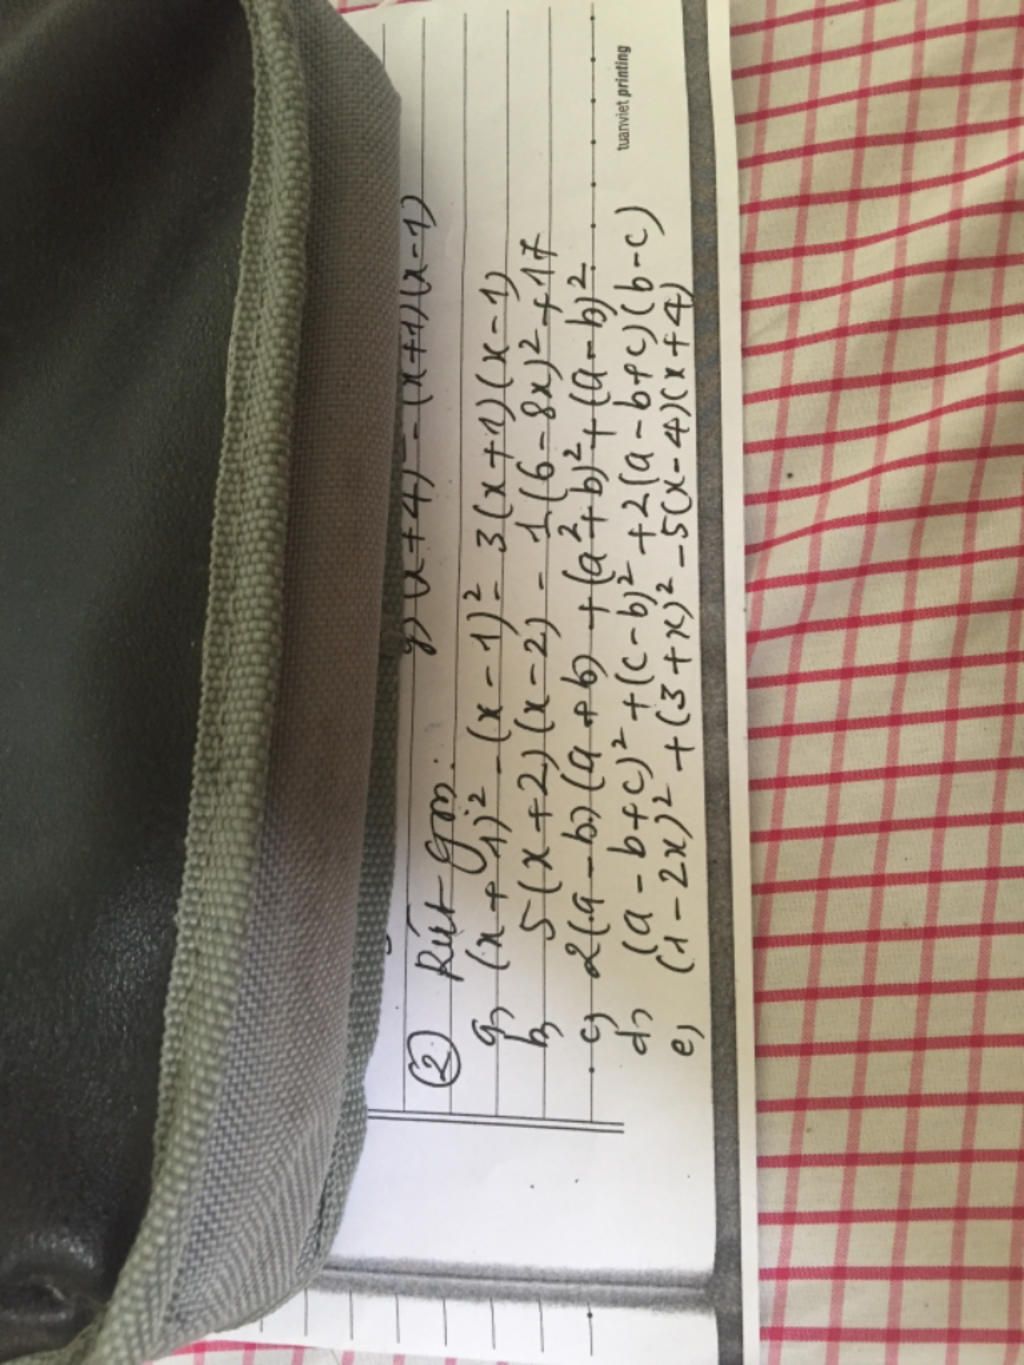 g) (x+4)² - (x+1)(x-1)
② Rút gọn:
a, (x+1)² - (x-1)² - 3(x+1)(x-1)
b, 5(x+2)(x-2) - 1(6-8x)² + 17
c, 2(a-b)(a+b) + (a²+b)² + (a-b)²
d, (a-b+c)² + (c-b)² + 2(a-b+c)(b-c)
e, (1-2x)² + (3+x)² - 5(x-4)(x+4)
tuanviet printing